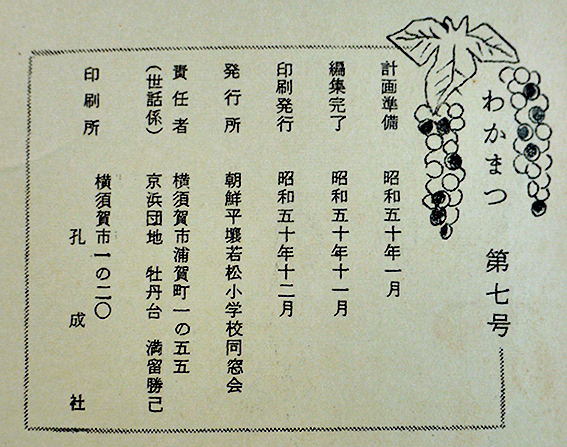 わかまつ 第七号
計画準備 昭和五十年一月
編集完了 昭和五十年十一月
印刷発行 昭和五十年十二月
発行所 朝鮮平壌若松小学校同窓会
責任者 横須賀市浦賀町一の五五
(世話係) 京浜団地 牡丹台 満留勝己
印刷所 横須賀市一の二〇
孔成社